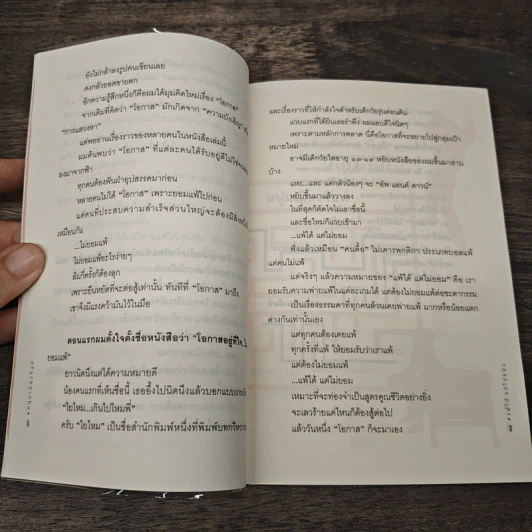 ยังไม่กล้าลงรูปคนเขียนเลย
คงกลัวยอดขายตก
อีกความรู้สึกหนึ่งก็คือผมได้มุมคิดใหม่เรื่อง "โอกาส"
จากเดิมที่คิดว่า "โอกาส" มักเกิดจาก "ความบังเอิญ"
"การแสวงหา"
แต่พออ่านเรื่องราวของหลายคนในหนังสือเล่มนี้
ผมค้นพบว่า "โอกาส" ที่แต่ละคนได้รับอยู่ดีไม่ใช่
ลงมาจากฟ้า
ทุกคนต้องฟันฝ่าอุปสรรคมาก่อน
หลายคนไม่ได้ "โอกาส" เพราะยอมแพ้ไปก่อน
แต่คนที่ประสบความสำเร็จส่วนใหญ่จะต้องมี
เหมือนกัน
...ไม่ยอมแพ้
ไม่ยอมแพ้อะไรง่ายๆ
ล้มกี่ครั้งก็ต้องลุก
เพราะยืนหยัดที่จะต่อสู้เท่านั้น ทันทีที่ "โอกาส" มาถึง
เขาจึงมีแรงคว้ามันไว้ในมือ
ตอนแรกผมตั้งใจตั้งชื่อหนังสือว่า "โอกาสอยู่ที่ใจ
ยอมแพ้"
ยาวนิดนึงแต่ได้ความหมายดี
น้องคนแรกที่เห็นชื่อนี้ เธออึ้งไปนิดนึงแล้วบอกแบบ
"ใยไหม...เกินไปไหมพี่"
ครับ "ใยไหม" เป็นชื่อสำนักพิมพ์หนึ่งที่พิมพ์บทกวี
และเรื่องราวที่ให้กำลังใจสำหรับเด็กวัยรุ่นตอนต้น
แวบแรกที่ได้ยินเธอรำพึง ผมแอบดีใจนิดๆ
เพราะตามหลักการตลาด นี่คือโอกาสที่จะขยายไปสู่กลุ่มเป้า
หมายใหม่
อาจมีเด็กวัยใสอายุ ๑๓-๑๔ หยิบหนังสือของผมขึ้นมาอ่าน
บ้าง
แหะ...แหะ แต่กลัวน้องๆ จะ "อัพ แอนด์ ดาวน์"
หยิบขึ้นมาแล้ววางลง
ในที่สุดก็ตัดใจไม่เอาชื่อนี้
และชื่อใหม่ก็แวบเข้ามา
...แพ้ได้ แต่ไม่ยอม
ฟังแล้วเหมือน "คนดื้อ" ไม่เคารพกติกา ประเภทบอลแพ้
แต่คนไม่แพ้
แต่จริงๆ แล้วความหมายของ "แพ้ได้ แต่ไม่ยอม" คือ เรา
ยอมรับความพ่ายแพ้ในแต่ละเกมได้ แต่ต้องไม่ยอมแพ้ต่อชะตากรรม
เป็นเรื่องธรรมดาที่ทุกคนล้วนเคยพ่ายแพ้ มากหรือน้อยแตก
ต่างกันเท่านั้นเอง
แต่ทุกคนต้องเคยแพ้
ทุกครั้งที่แพ้ ให้ยอมรับว่าเราแพ้
แต่ต้องไม่ยอมแพ้
...แพ้ได้ แต่ไม่ยอม
เหมาะที่จะท่องจำเป็นสูตรคูณชีวิตอย่างยิ่ง
จะเลวร้ายแค่ไหนก็ต้องสู้ต่อไป
แล้ววันหนึ่ง "โอกาส" ก็จะมาเอง